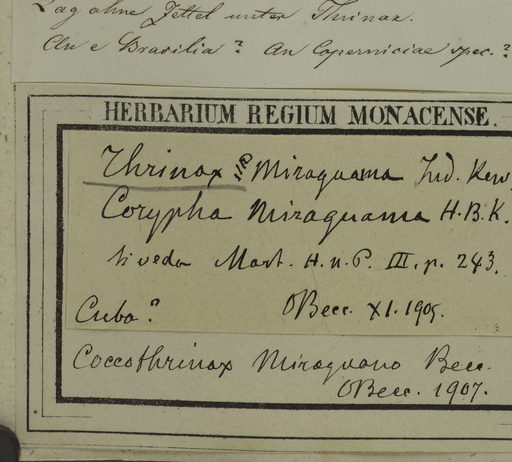 Lag ohne Zettel unter Thrinax.
An e Brasilia? An Coperniciae spec.?
HERBARIUM REGIUM MONACENSE.
Thrinax Miraguama Ind. Kew.
Corypha Miraguama H.B.K.
si veda Mart. H.n.P. III. p. 243.
Cuba? OBecc. XI. 1905.
Coccothrinax Miraguano Becc.
OBecc. 1907.